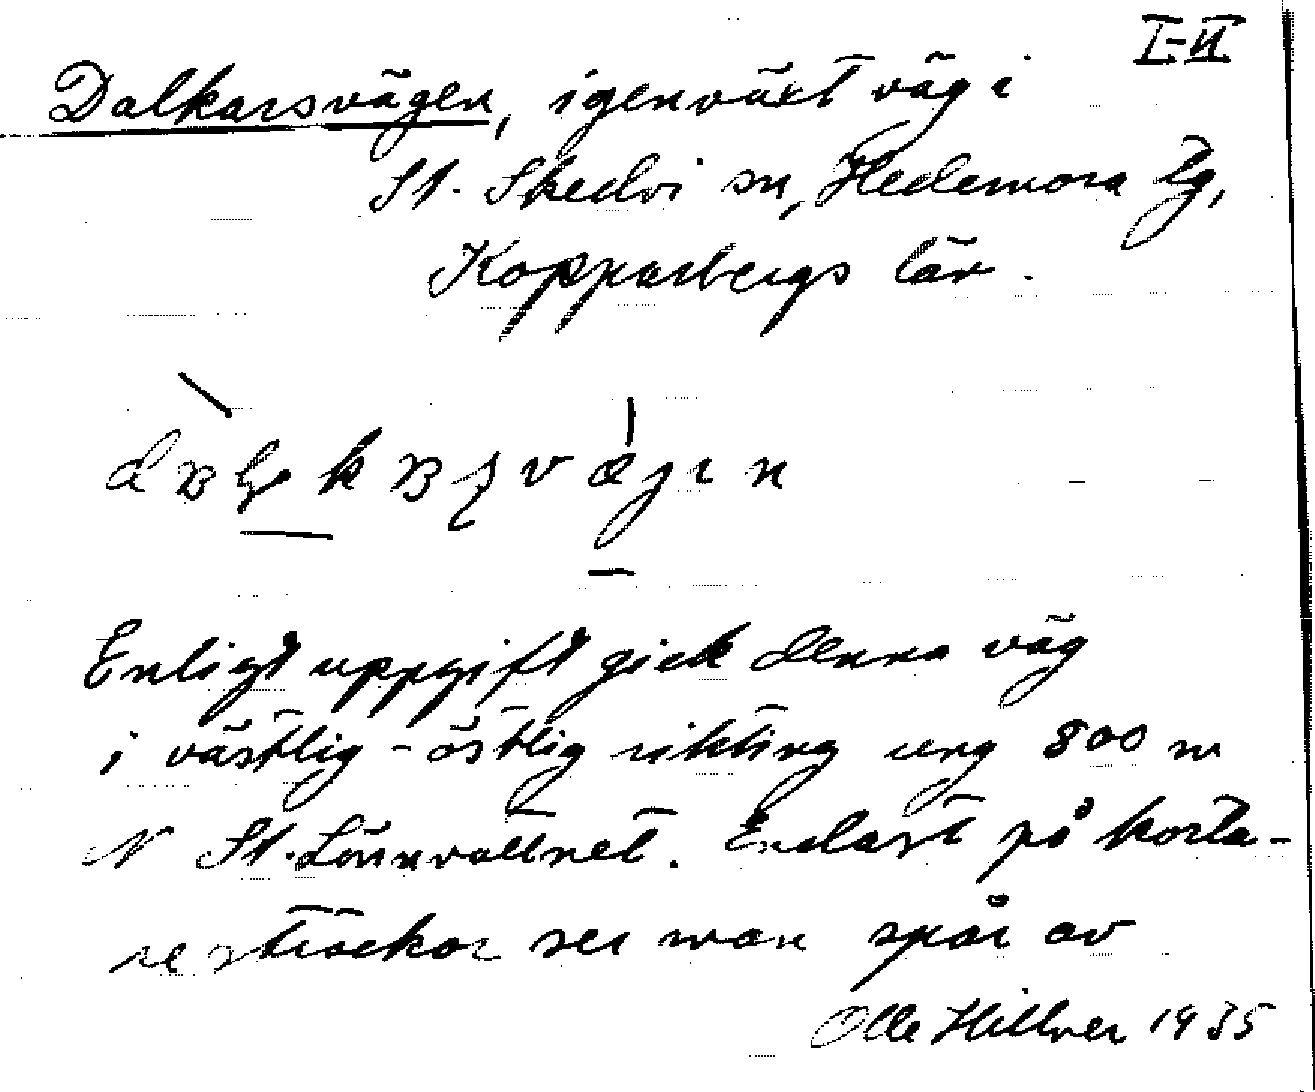 I-II
Dalkarsvägen, igenväxt väg i
St. Skedvi sn, Hedemora tg,
Kopparbergs län.
Enligt uppgift gick denna väg
i västlig-östlig rikting ung 800 m
N St. Lönnvattnet. Endast på korta-
re sträckor ser man spår av
Olle Hillver 1935